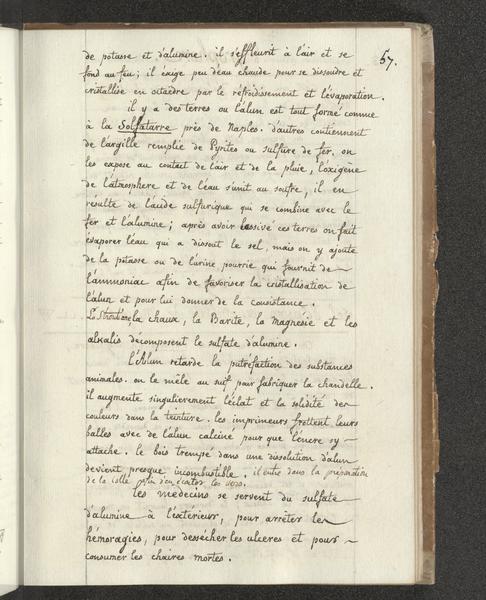 57.
de potasse et d'alumine. il s'effleurit à l'air et se
fond au feu; il éxige peu d'eau chaude pour se dissoudre et
cristallise en octaëdre par le refroidissement et l'évaporation.
il y a des terres ou l'alun est tout formé comme
à la Solfatarre près de Naples. d'autres contiennent
de l'argille remplie de Pyrites ou sulfure de fer. on
les expose au contact de l'air et de la pluie, l'oxigène
de l'atmosphere et de l'eau s'unit au soufre, il en
résulte de l'acide sulfurique qui se combine avec le
fer et l'alumine; après avoir lessivé ces terres on fait
évaporer l'eau qui a dissout le sel, mais on y ajoute
de la potasse ou de l'urine pourrie qui fournit de
l'ammoniac afin de favoriser la cristallisation de
l'alun et pour lui donner de la consistance.
La Strontiane, la chaux, la Barite, la magnésie et les
alkalis décomposent le sulfate d'alumine.
l'Alun retarde la putréfaction des substances
animales. on le mêle au suif pour fabriquer la chandelle.
il augmente singulierement l'éclat et la solidité des
couleurs dans la teinture. les imprimeurs frottent leurs
balles avec de l'alun calciné pour que l'encre s'y
attache. le bois trempé dans une dissolution d'alun
devient presque incombustible. il entre dans la préparation
de la colle afin d'en écarter les vers.
les médecins se servent du sulfate
d'alumine à l'éxtérieur, pour arrêter les
hémoragies, pour dessecher les ulceres et pour
consumer les chaires mortes.